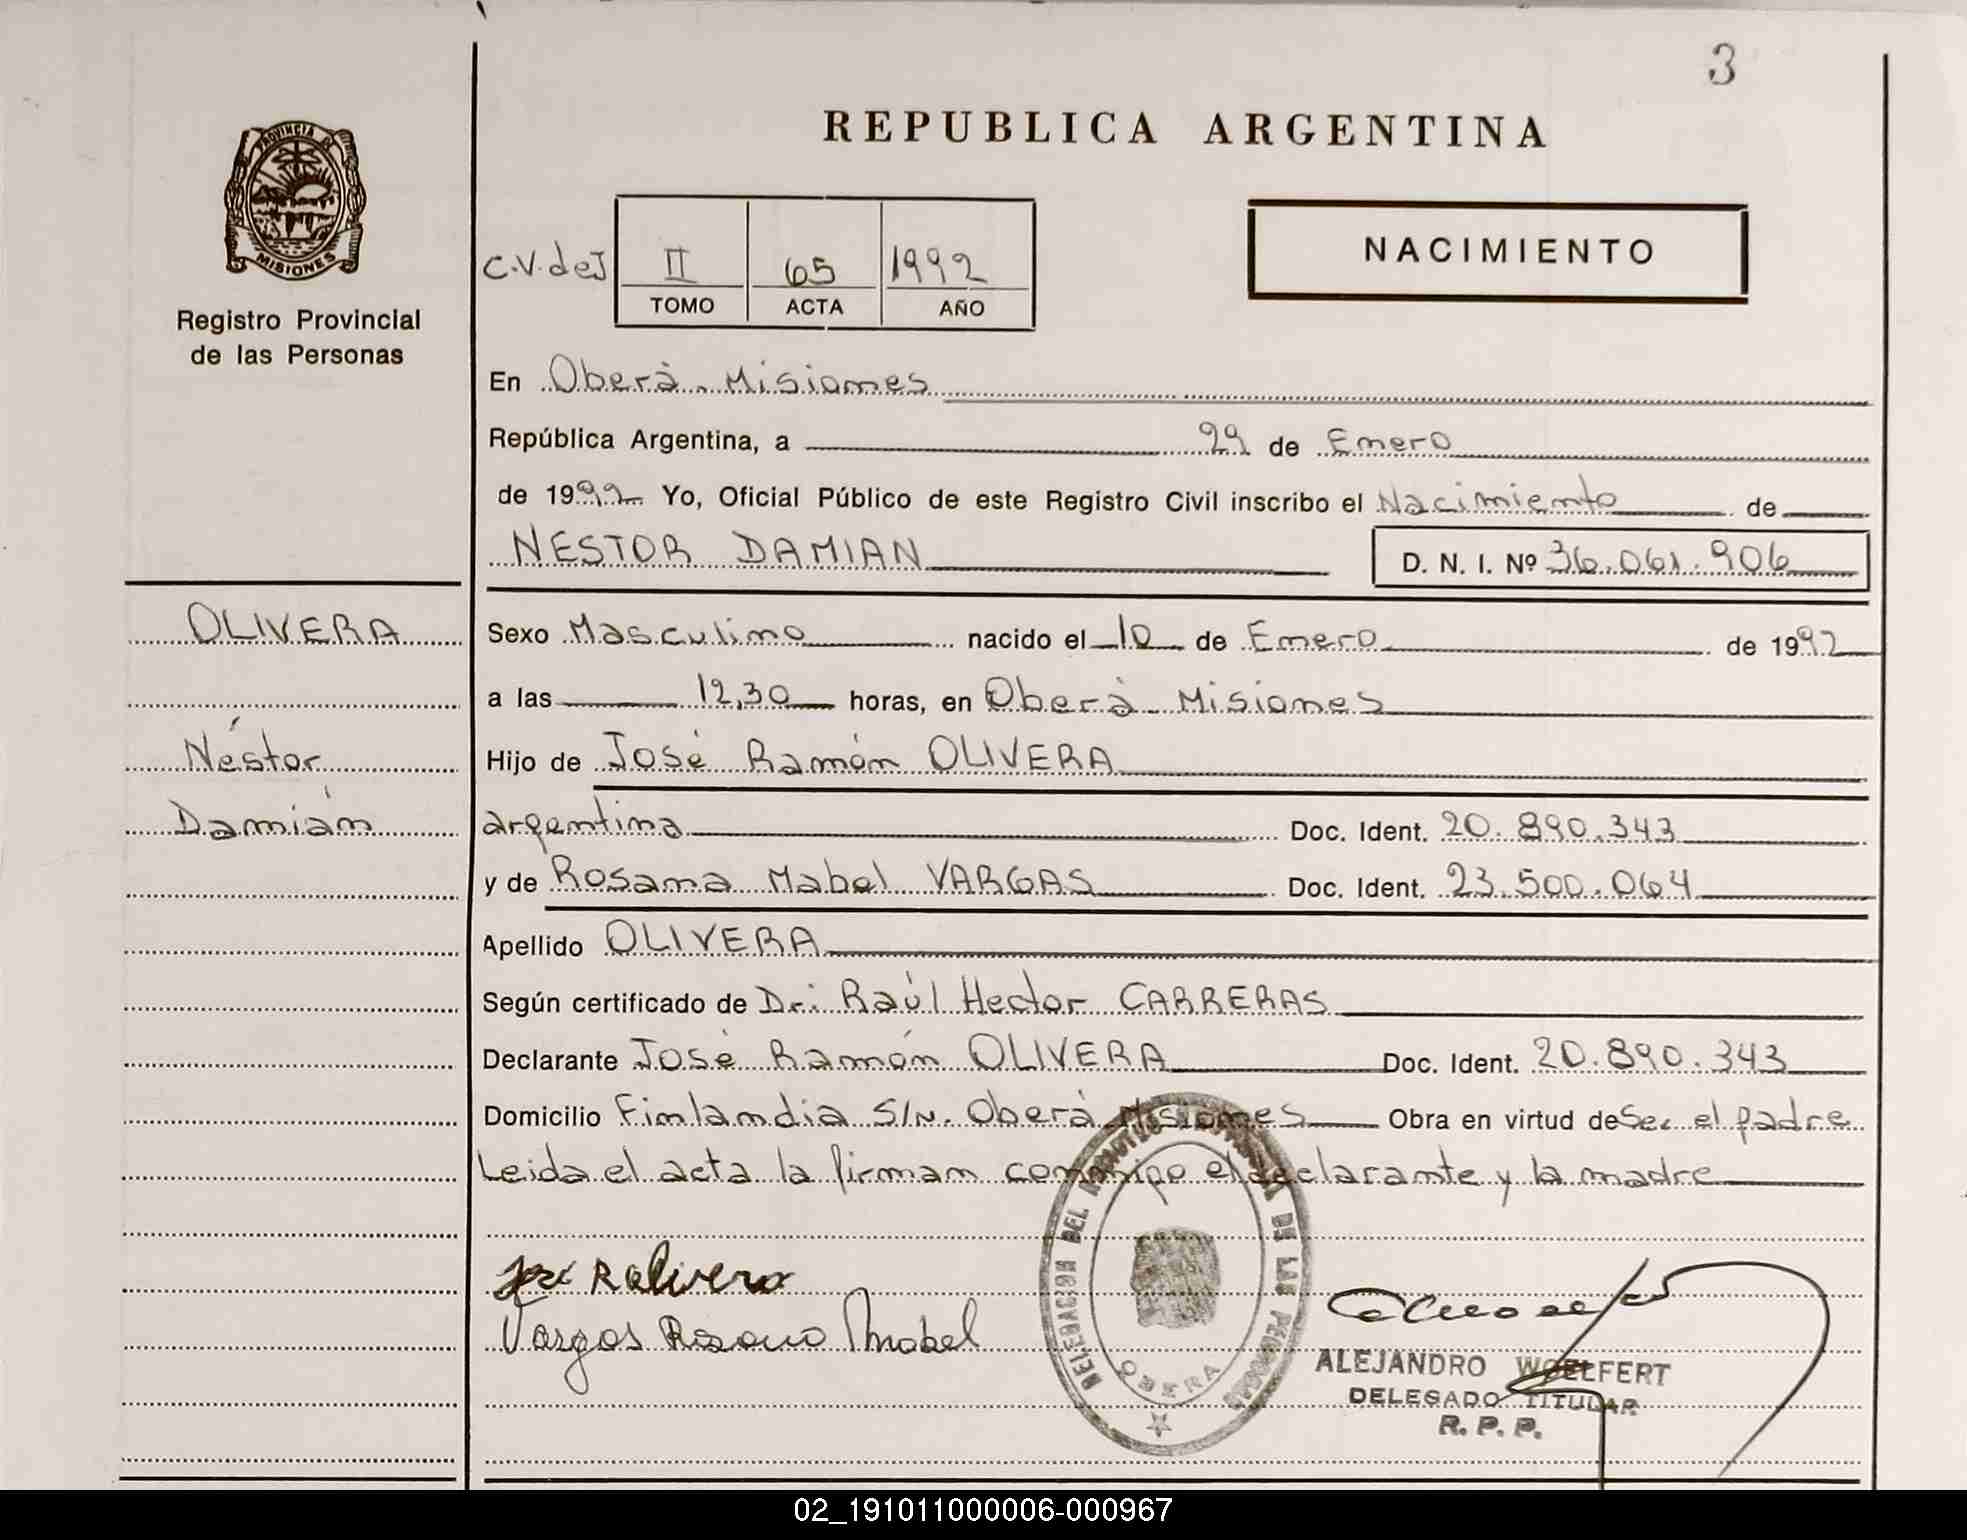 3
REPUBLICA ARGENTINA
PROVINCIA DE
MISIONES
Registro Provincial
de las Personas
C.V. de J
II 65 1992
TOMO ACTA AÑO
NACIMIENTO
En Oberá - Misiones
República Argentina, a 29 de Enero
de 1992 Yo, Oficial Público de este Registro Civil inscribo el Nacimiento de
NESTOR DAMIAN D. N. I. Nº 36.061.906
OLIVERA
Néstor
Damián
Sexo Masculino nacido el 10 de Enero de 1992
a las 12,30 horas, en Oberá - Misiones
Hijo de José Ramón OLIVERA
argentina Doc. Ident. 20.890.343
y de Rosana Mabel VARGAS Doc. Ident. 23.500.064
Apellido OLIVERA
Según certificado de Dr: Raúl Hector CARRERAS
Declarante José Ramón OLIVERA Doc. Ident. 20.890.343
Domicilio Finlandia S/N. Oberá Misiones Obra en virtud de Ser el padre
Leida el acta la firman conmigo el declarante y la madre
José R Olivera
Vargas Rosana Mabel
DELEGACION DEL REGISTRO PROVINCIAL DE LAS PERSONAS
OBERA
ALEJANDRO WOELFERT
DELEGADO TITULAR
R. P. P.
02_191011000006-000967